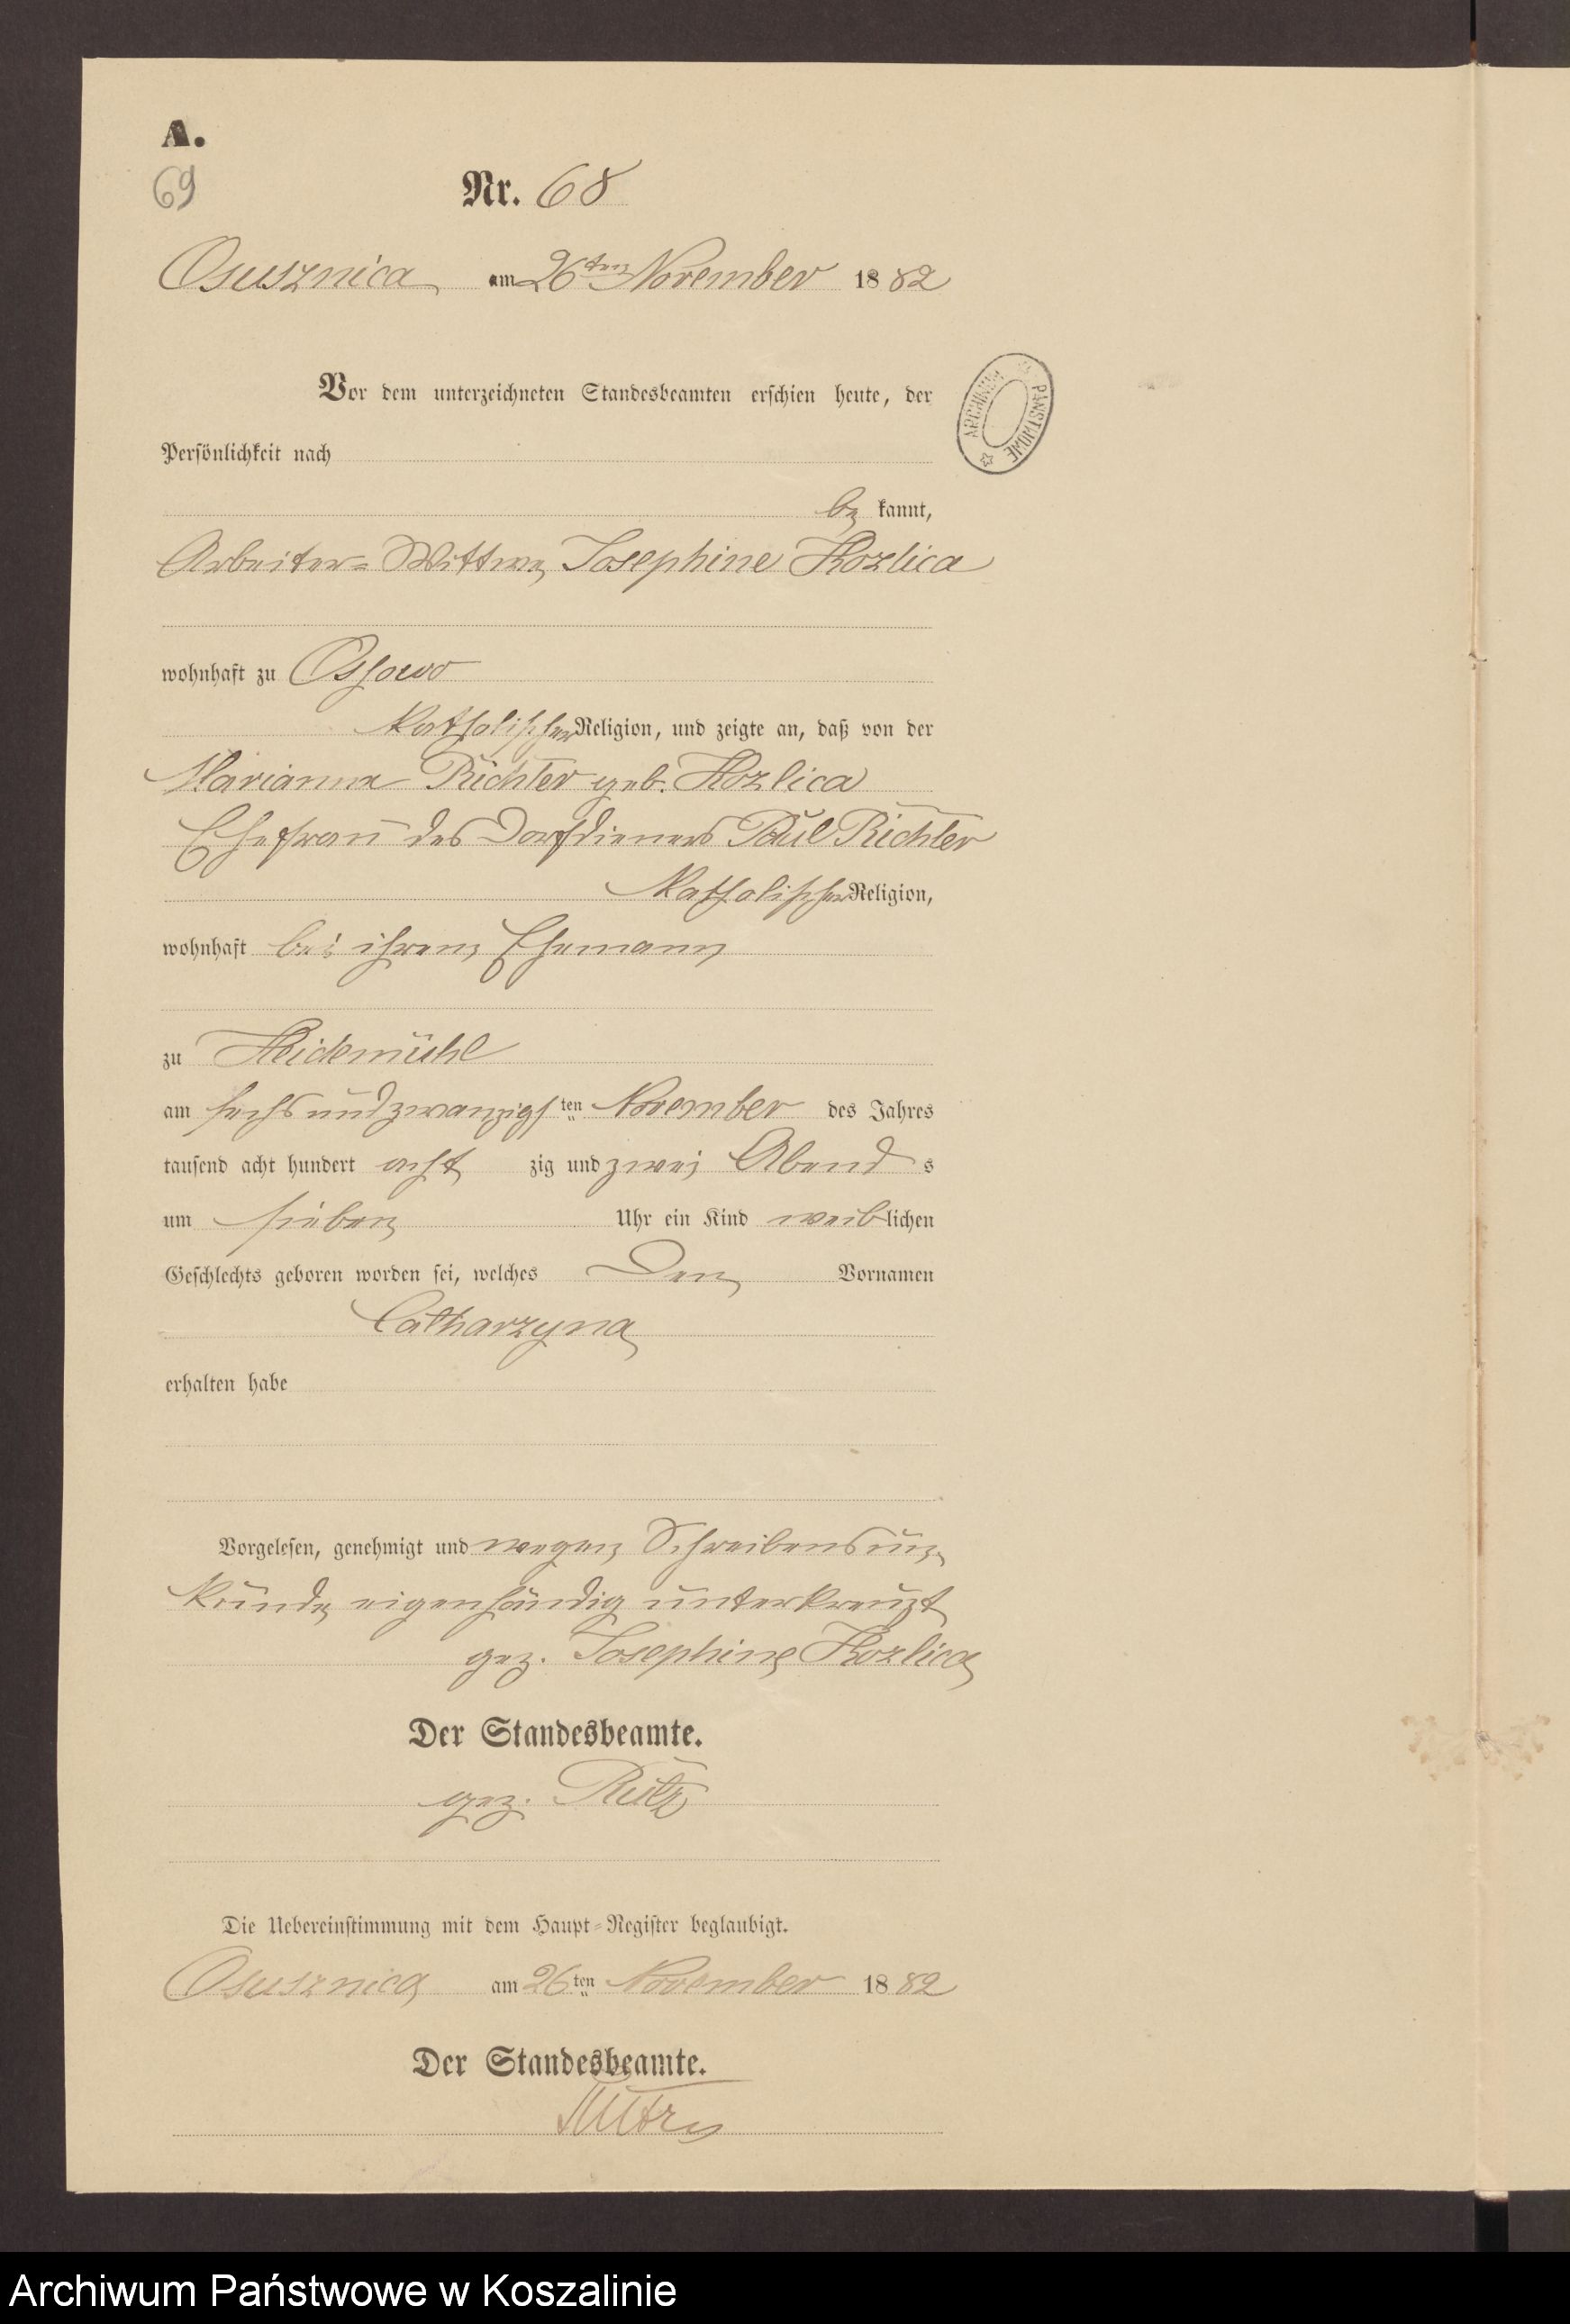 A.
69
Nr. 68
Osusznica am 26ten November 1882
Vor dem unterzeichneten Standesbeamten erschien heute, der
Persönlichkeit nach
be kannt,
Arbeiter=Wittwe Josephine Kozlica
wohnhaft zu Ossowo
katholischer Religion, und zeigte an, daß von der
Marianna Richter geb. Kozlica
Ehefrau des Dorfdieners Paul Richter
katholischer Religion,
wohnhaft bei ihrem Ehemann
zu Heidemühl
am sechs und zwanzigsten November des Jahres
tausend acht hundert acht zig und zwei Abend s
um sieben Uhr ein Kind weiblichen
Geschlechts geboren worden sei, welches den Vornamen
Catharzyna
erhalten habe
Vorgelesen, genehmigt und wegen Schreibensun-
kunde eigenhändig unterkreuzt
gez. Josephine Kozlica
Der Standesbeamte.
gez.
Die Uebereinstimmung mit dem Haupt=Register beglaubigt.
Osusznica am 26ten November 1882
Der Standesbeamte.
ARCHIWUM PAŃSTWOWE
Archiwum Państwowe w Koszalinie